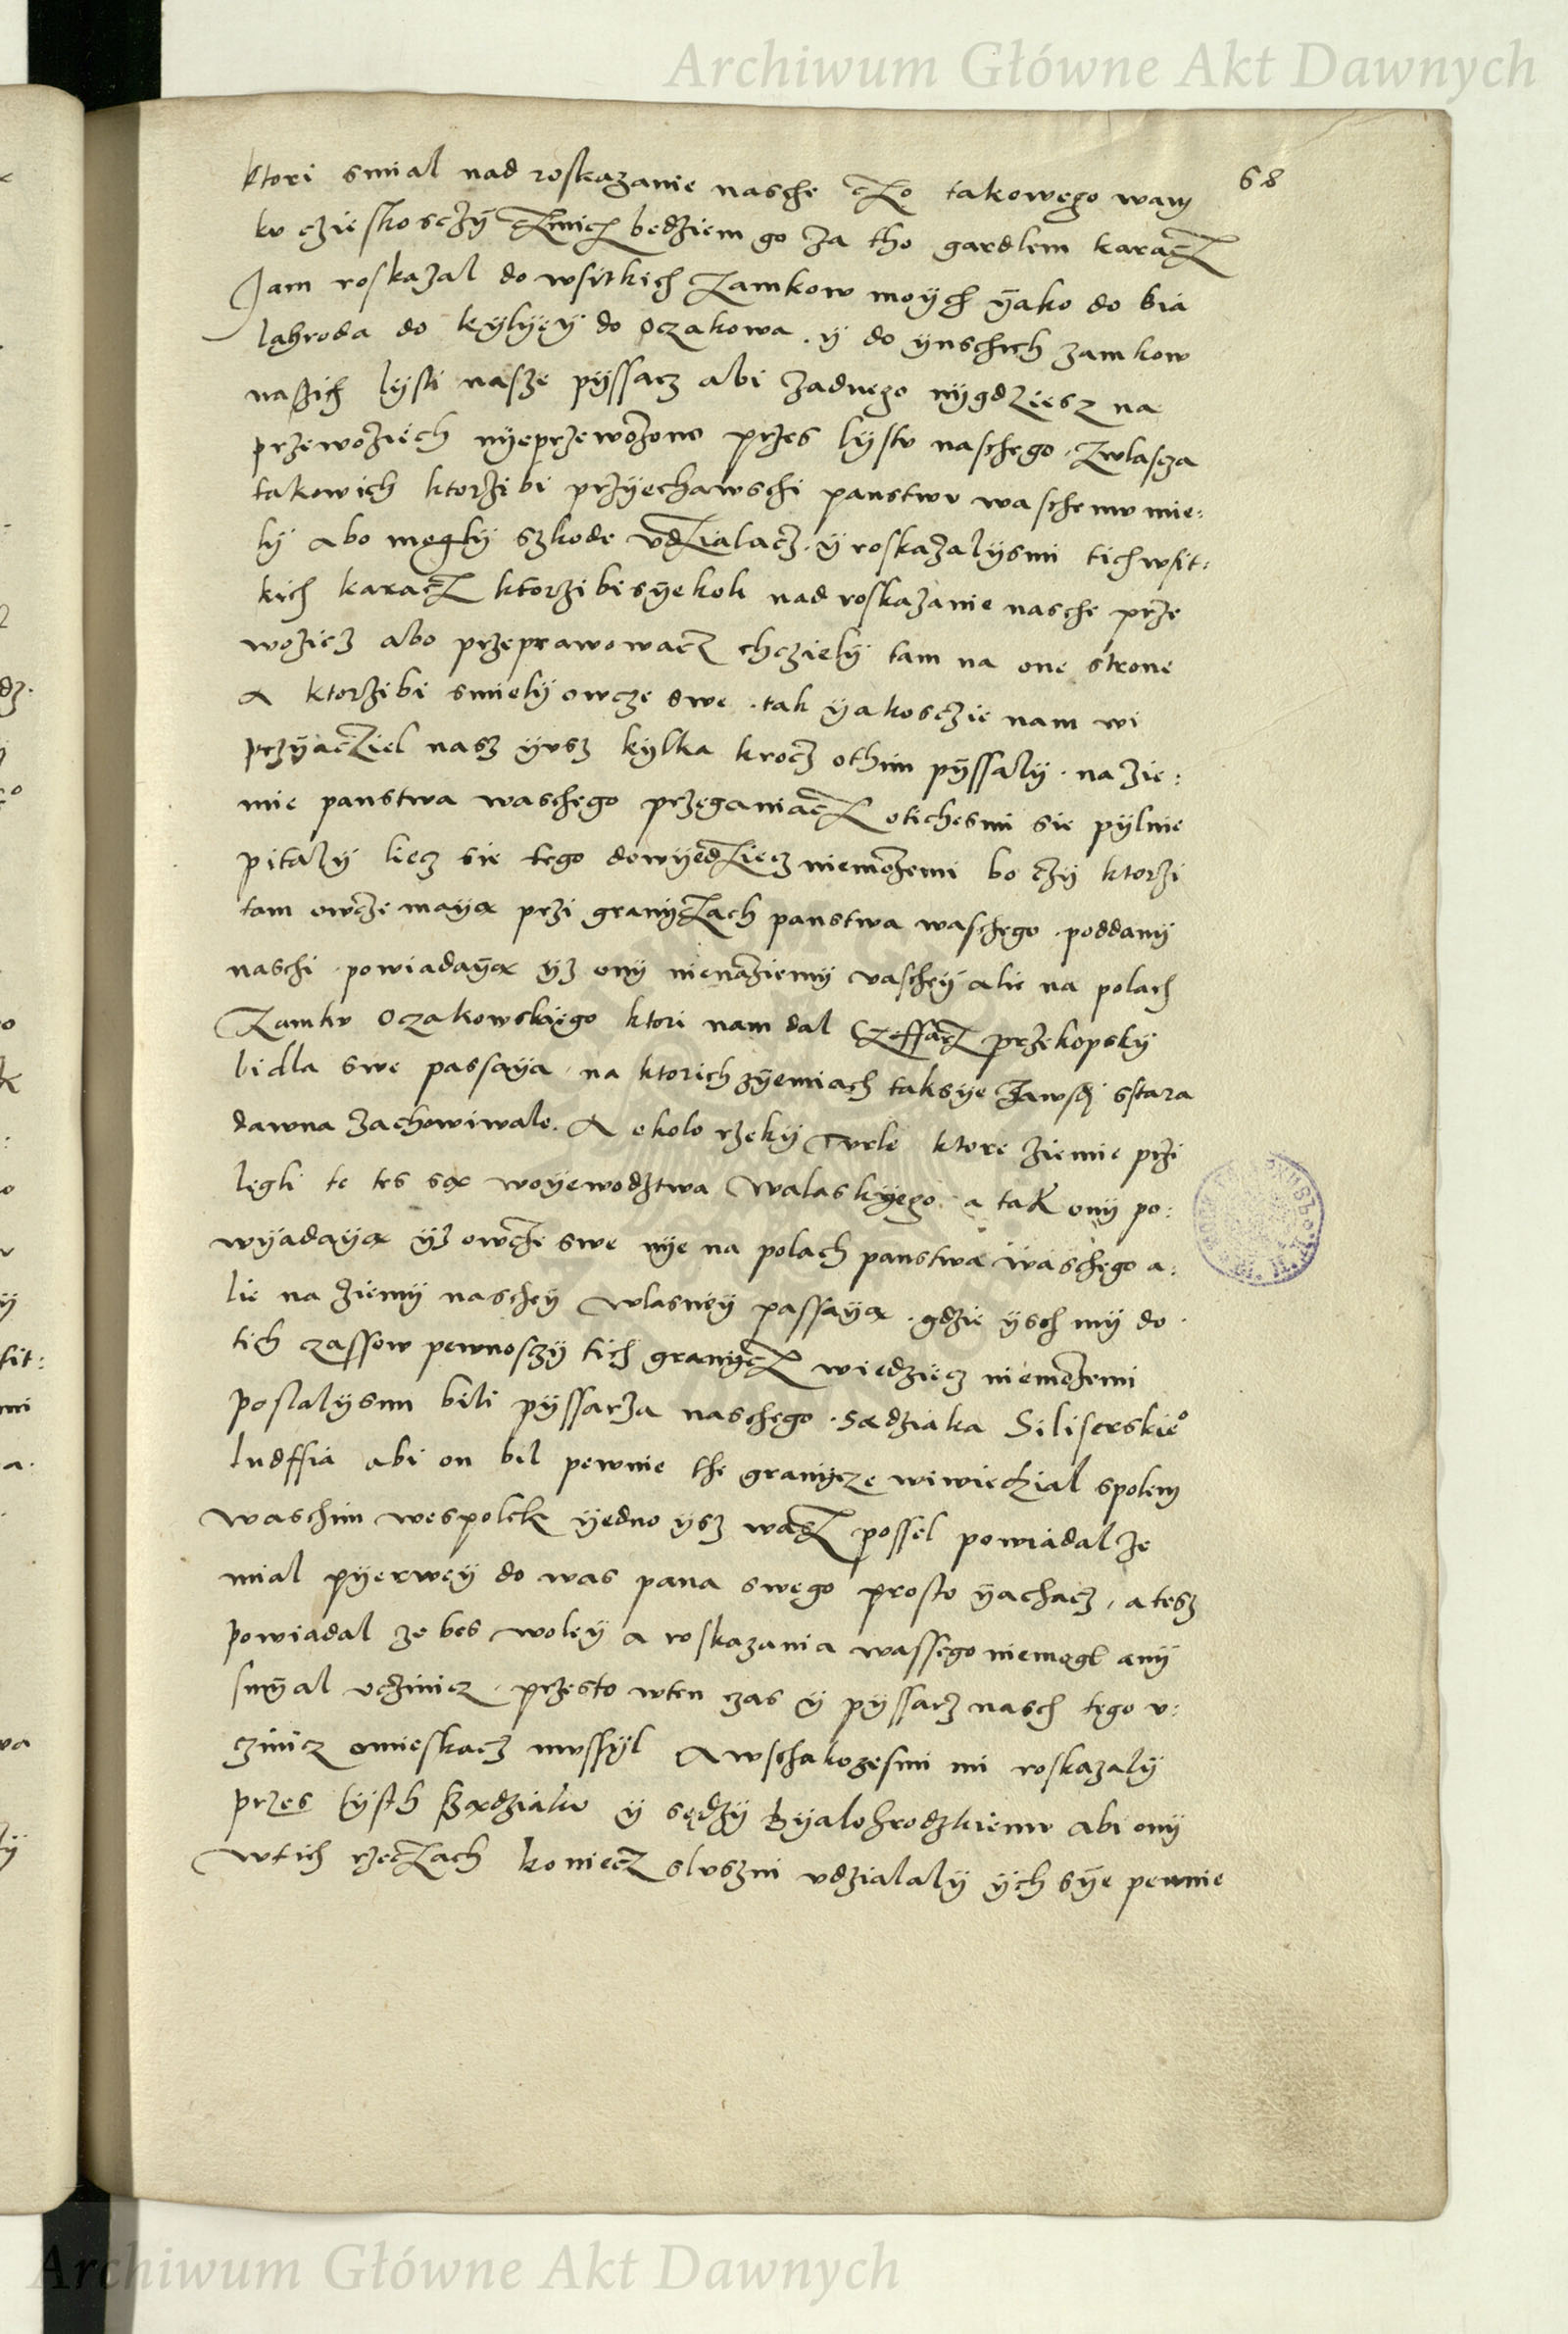 Archiwum Główne Akt Dawnych
68
ktori smial nad roskazanie nasche czo takowego wam
ku czieskosczÿ czinicz bedziem go za tho gardlem karacz
Jam roskazal do wsitkich zamkow moÿch ÿako do bia
lahroda do kÿlÿeÿ do Oczakowa . ÿ do ÿnschich zamkow
naszich lÿsti nasze pÿssacz abi zadnego nÿgdziesz na
przewoziech nÿeprzewozono przes lÿstu naschego . zwlascza
takowich ktorzibi przÿechawschi panstwu waschemu mie:
lÿ abo moglÿ szkode vdzialacz . ÿ roskazalÿsmi tich wsit:
kich karacz ktorzibisÿekoli nad roskazanie nasche prze
woziecz abo przeprawowacz chczielÿ tam na one strone
A ktorzibi smielÿ owcze swe . tak ÿakosczie nam wi
przÿacziel nasz ÿusz kÿlka krocz othim pÿssalÿ . na zie:
mie panstwa waschego przeganiacz otichesmi sie pÿlnie
pitalÿ liecz sie tego dowÿedziecz niemozemi bo czÿ ktorzi
tam owcze maÿa przi granÿczach panstwa waschego . poddanÿ
naschi . powiadaÿa ÿz onÿ nienaziemÿ vascheÿ alie na polach
Zamku Oczakowskiego ktori nam dal Czessarz przekopskÿ
bidla swe passaÿa . na ktorich zÿemiach taksÿe zawsdi sstara
dawna zachowiwalo . A okolo rzekÿ Turle ktore ziemie przi
legli te tes sa woÿewodztwa Walaskÿego . a tak onÿ po:
wÿadaÿa ÿz owcze swe nÿe na polach panstwa waschego a:
lie na ziemÿ nascheÿ wlasneÿ passaÿa . gdzie ÿsch mÿ do
tich czassow pewnosczÿ tich granÿcz wiedziecz niemozemi
poslalÿsmi bili pÿssarza naschego . Sadziaka Siliserskieo
ludffia abi on bil pewnie the granÿcze wiwiedzial spolem
waschim wespolek ÿedno ÿsz wasz possel powiadal ze
mial pÿerweÿ do was pana swego prosto ÿachacz , a tesz
powiadal ze bes woleÿ a roskazania wassego niemogl anÿ
smÿal vczinicz . przesto wten czas ÿ pÿssarz nasch tego v:
czinicz omieskacz mussÿl A wschakozesmi mi roskazalÿ
przes lÿsth Sadziaku ÿ sędzÿ Byalohrodzkiemu abi onÿ
wtich rzeczach koniecz slusznי vdzialalÿ ÿch sÿe pewnie
Archiwum Główne Akt Dawnych